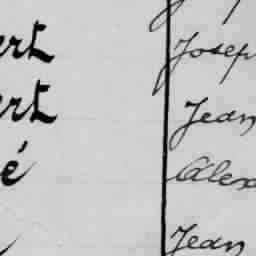 ert Josep
ert Jean
é Alex
Jean